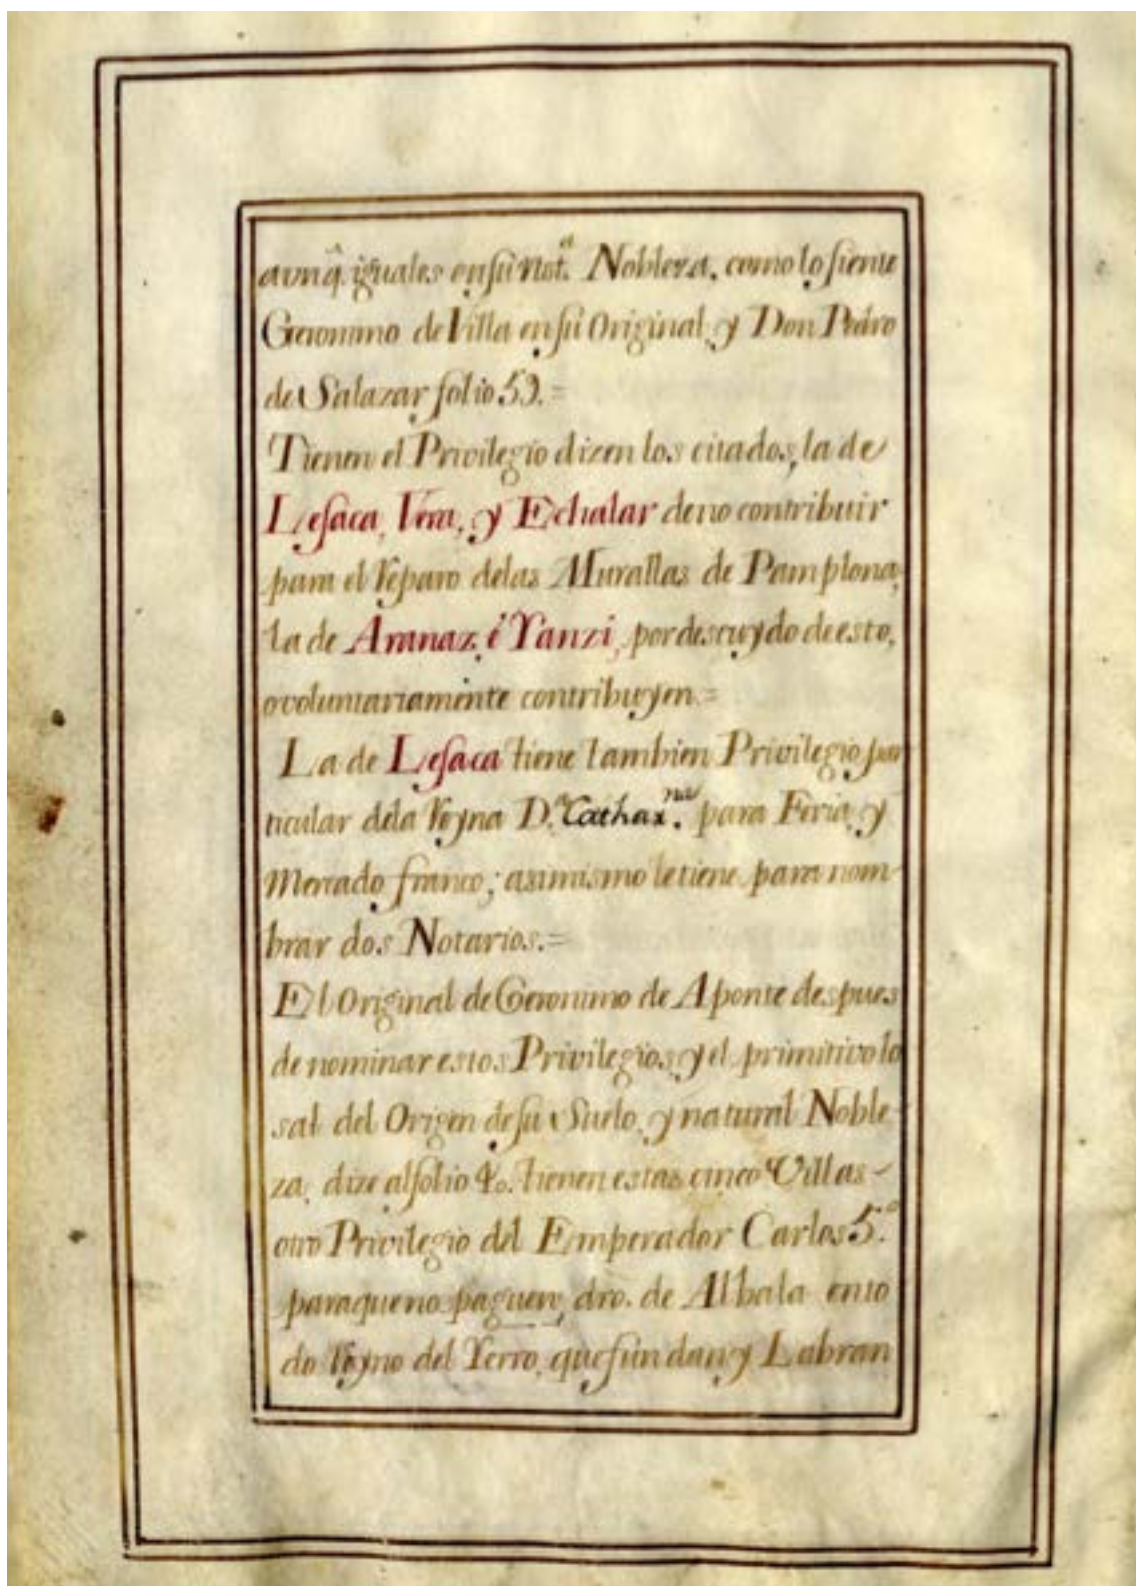 avnq̂. iguales en su nat.ª Nobleza. como lo siente
Geronimo de Villa en su Original, y Don Pedro
de Salazar folio 59. =
Tienen el Privilegio dizen los citados, la de
Lesaca, Vera, y Echalar de no contribuir
para el reparo delas Murallas de Pamplona,
la de Aranaz, è Yanzi, por descuydo de esto,
o voluntariamente contribuyen. =
La de Lesaca tiene tambien Privilegio par
ticular dela Reyna D.ª Cathar.na para Feria, y
Mercado franco; asimismo le tiene para nom-
brar dos Notarios. =
El Original de Geronimo de Aponte despues
de nominar estos Privilegios, y el primitivo lo
sal del Origen de su Suelo, y natural Noble-
za, dize al folio tienen estas cinco Villas -
otro Privilegio del Emperador Carlos 5.º
para que no paguen dro. de Albala en to
do Reyno del Yerro, que fundan y Labran